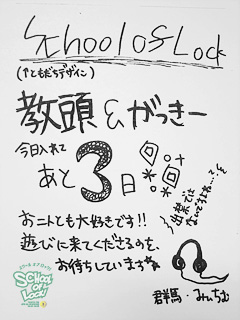 School of Lock
(↑ともだちデザイン)
教頭&がっきー
今日入れて
あと3日
回
回
出禁では
ないですよね…?
お二人とも大好きです!!
遊びに来てくださるのを、
お待ちしています
SCHOOL
OF
LOCK!
群馬・みんちむ